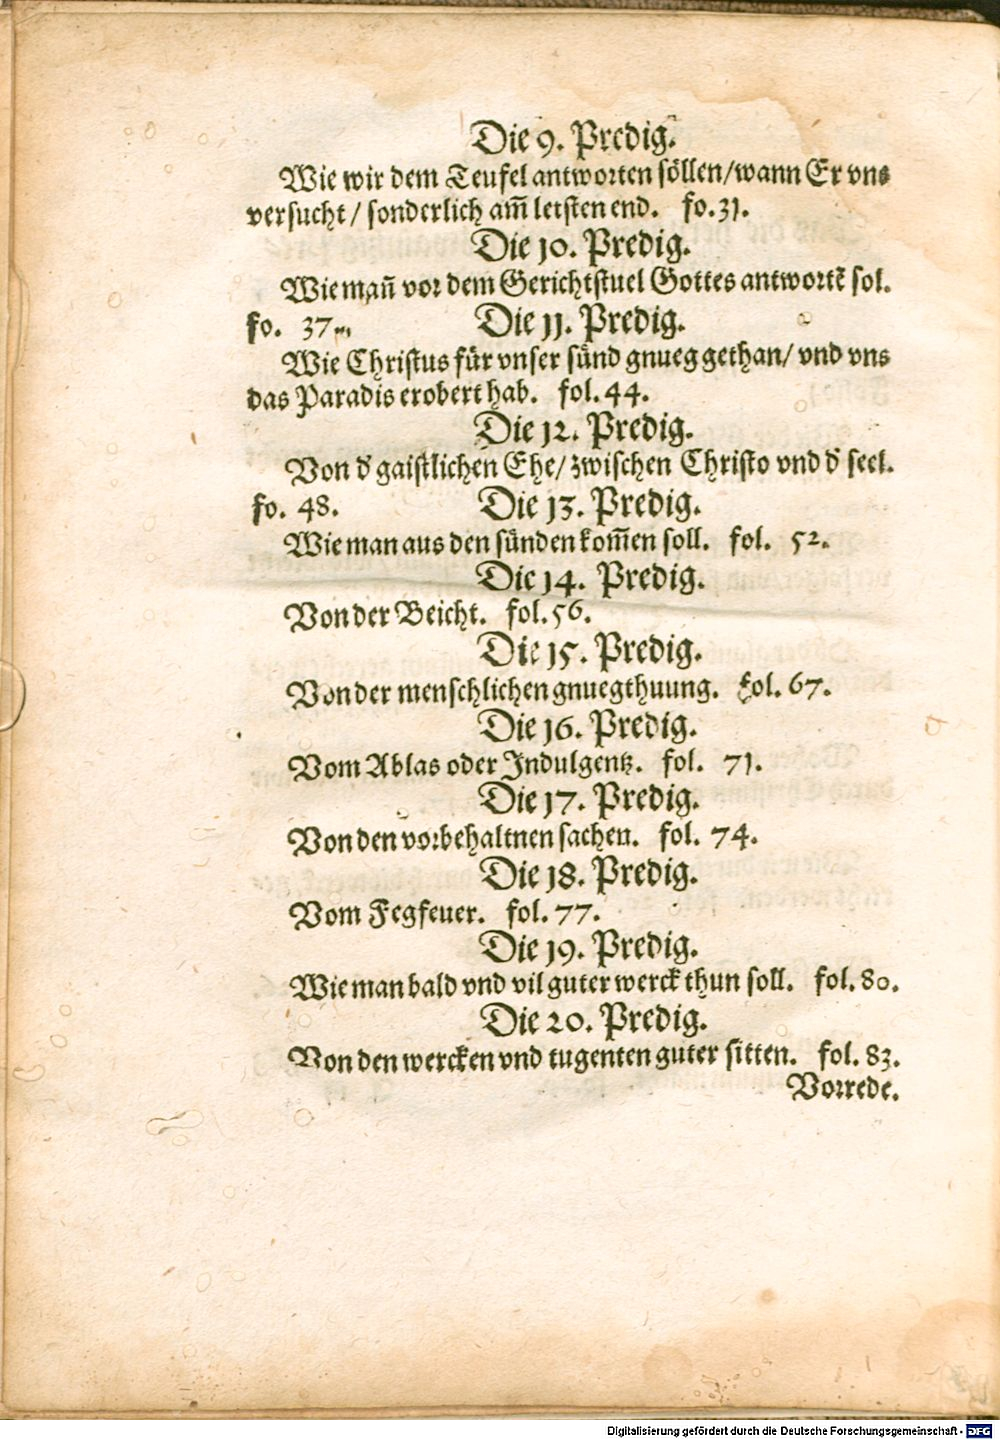 Die 9. Predig.
Wie wir dem Teufel antworten söllen/wann Er vns
versucht / sonderlich am̃ letsten end. fo. 31.
Die 10. Predig.
Wie mañ vor dem Gerichtstuel Gottes antwortẽ sol.
fo. 37. Die 11. Predig.
Wie Christus für vnser sünd gnueg gethan/ vnd vns
das Paradis erobert hab. fol. 44.
Die 12. Predig.
Von d' gaistlichen Ehe/ zwischen Christo vnd d' seel.
fo. 48. Die 13. Predig.
Wie man aus den sünden kom̃en soll. fol. 52.
Die 14. Predig.
Von der Beicht. fol. 56.
Die 15. Predig.
Von der menschlichen gnuegthuung. fol. 67.
Die 16. Predig.
Vom Ablas oder Indulgentz. fol. 71.
Die 17. Predig.
Von den vorbehaltnen sachen. fol. 74.
Die 18. Predig.
Vom Fegfeuer. fol. 77.
Die 19. Predig.
Wie man bald vnd vil guter werck thun soll. fol. 80.
Die 20. Predig.
Von den wercken vnd tugenten guter sitten. fol. 83.
Vorrede.
Digitalisierung gefördert durch die Deutsche Forschungsgemeinschaft - DFG